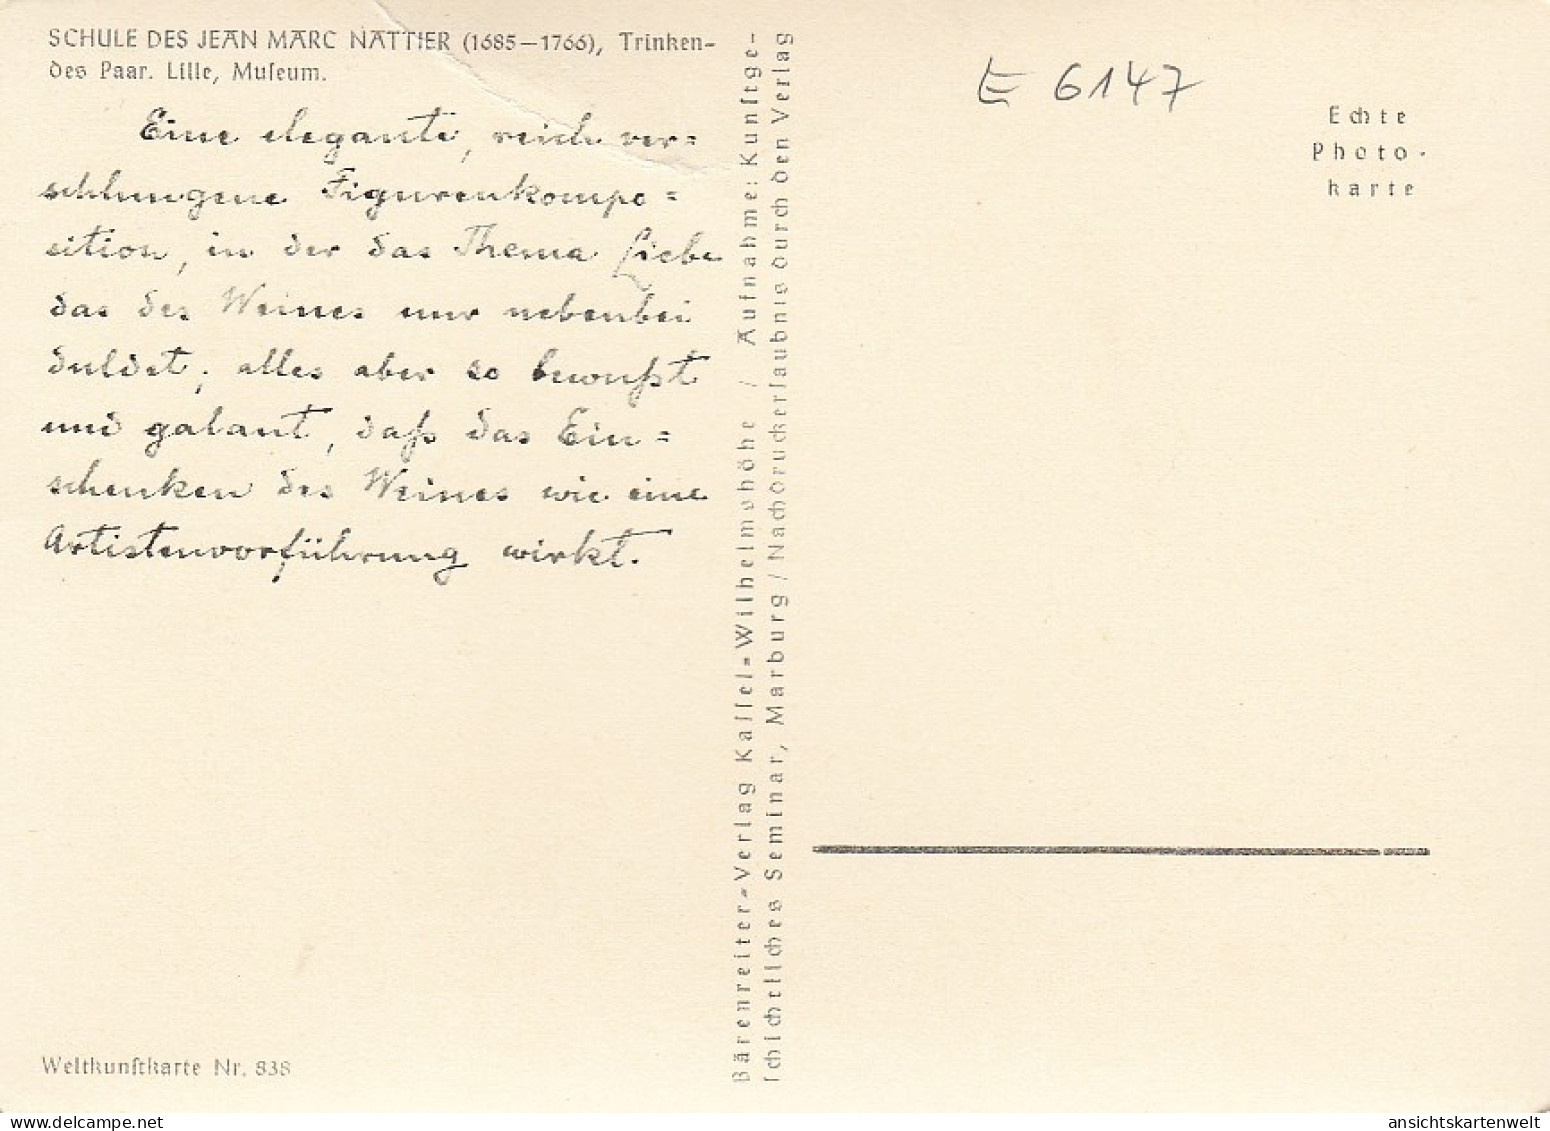 SCHULE DES JEAN MARC NATTIER (1685–1766), Trinken-
des Paar. Lille, Muſeum.
Eine elegante, reich ver=
schlungene Figurenkompo=
sition, in der das Thema Liebe
das des Weines nur nebenbei
duldet; alles aber so bewußt
und galant, daß das Ein=
schenken des Weines wie eine
Artistenvorführung wirkt.
Weltkunſtkarte Nr. 838
Bärenreiter-Verlag Kaſſel-Wilhelmshöhe / Aufnahme: Kunſtge-
ſchichtliches Seminar, Marburg / Nachdruckerlaubnis durch den Verlag
E 6147
Echte
Photo-
karte
ansichtskartenwelt